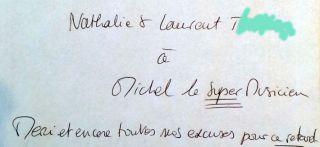 Nathalie & Laurent T
à
Michel le super Musicien
Merci et encore toutes nos excuses pour ce retard